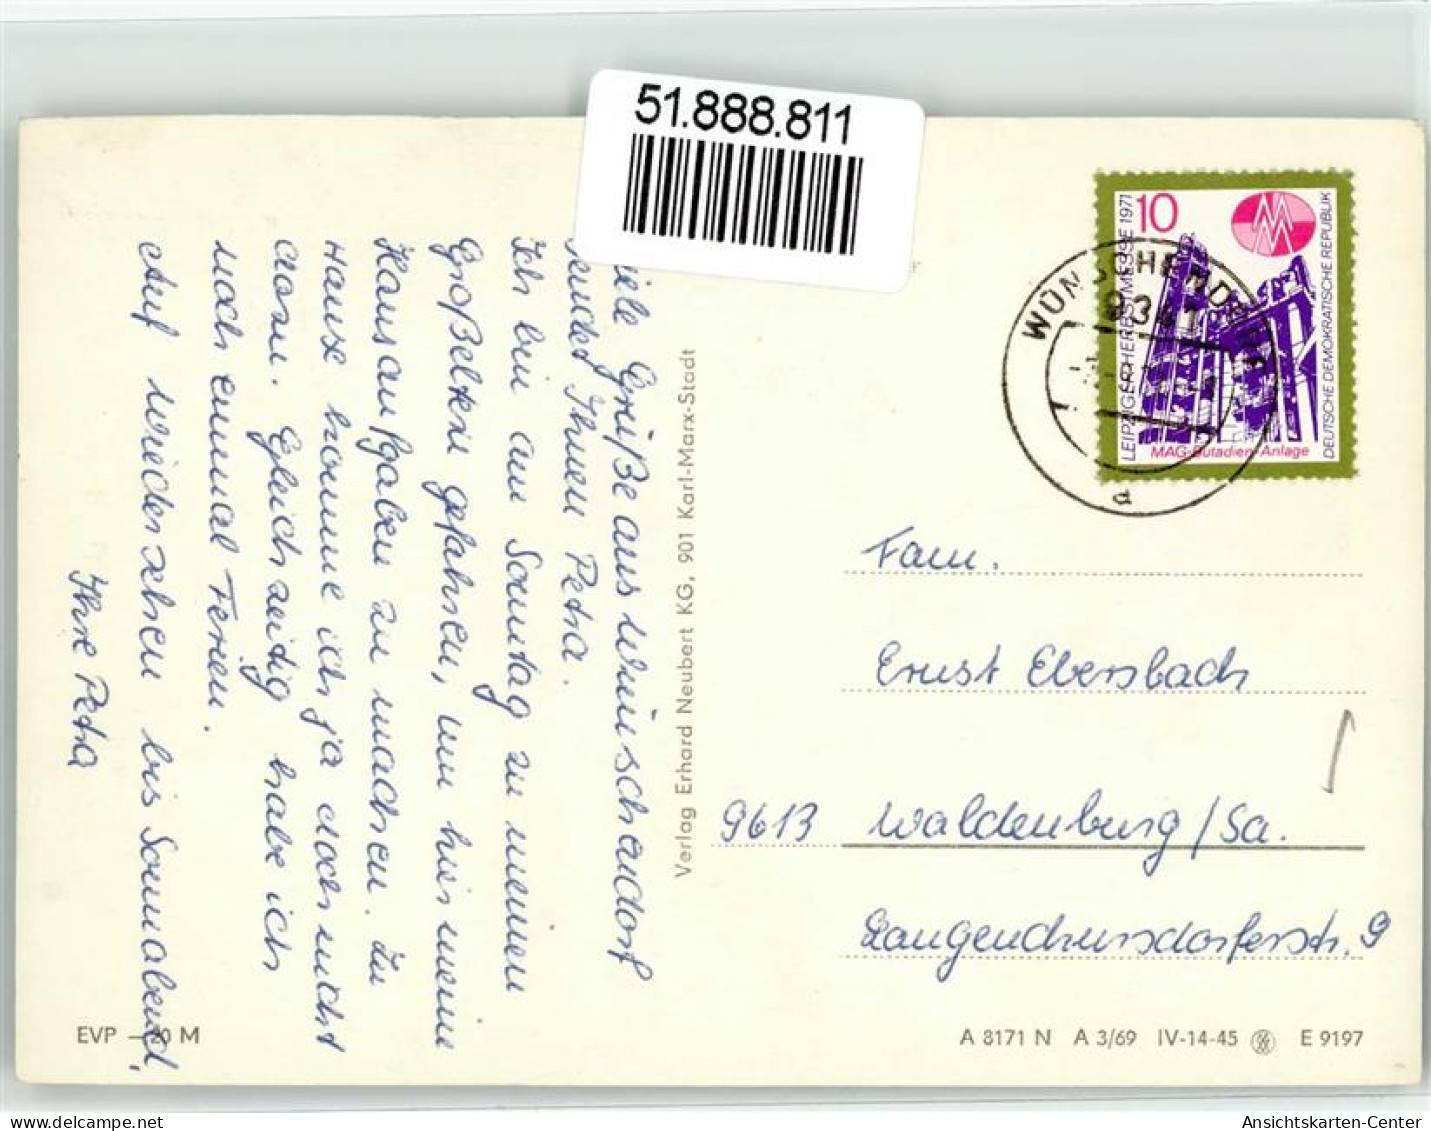 51.888.811
Viele Grüße aus Wünschendorf
sendet Ihnen Petra.
Ich bin am Sonntag zu meinen
Großeltern gefahren, um hier meine
Hausaufgaben zu machen. Zu
Hause komme ich ja doch nicht
dazu. Gleichzeitig habe ich
noch einmal Ferien.
Auf Wiedersehen bis Sonnabend,
Ihre Petra
EVP —20 M
Verlag Erhard Neubert KG, 901 Karl-Marx-Stadt
10
MM
LEIPZIGER HERBSTMESSE 1971
DEUTSCHE DEMOKRATISCHE REPUBLIK
MAG-Butadien-Anlage
WÜNSCHENDORF
9341
a
Fam.
Ernst Ebersbach
9613 Waldenburg/Sa.
Langenchursdorferstr. 9
A 8171 N A 3/69 IV-14-45 E 9197
Ansichtskarten-Center